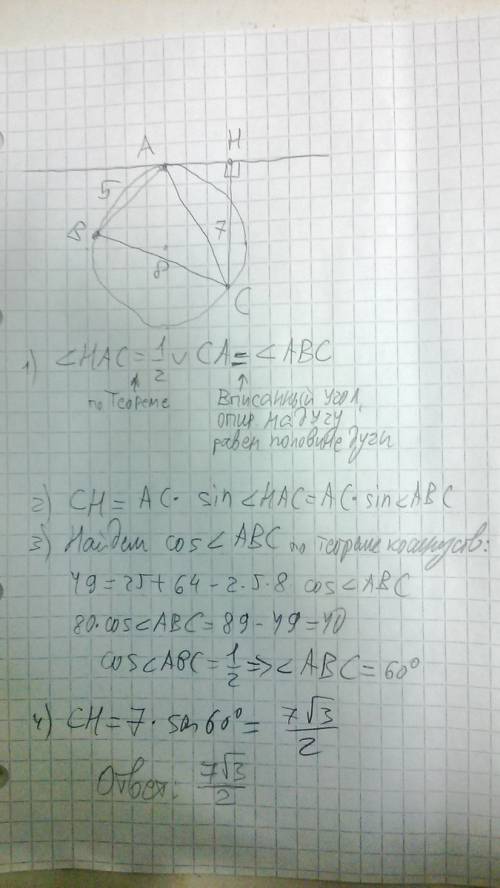 A
H
5
B
7
8
C
1) ∠HAC = 1/2 ∪ CA = ∠ABC
по Теореме
Вписанный угол,
опир на дугу
равен половине дуги
2) CH = AC · sin ∠HAC = AC · sin ∠ABC
3) Найдем cos ∠ABC по теореме косинусов:
49 = 25 + 64 - 2·5·8 cos ∠ABC
80·cos ∠ABC = 89 - 49 = 40
cos ∠ABC = 1/2 => ∠ABC = 60°
4) CH = 7 · sin 60° = 7√3/2
Ответ: 7√3/2